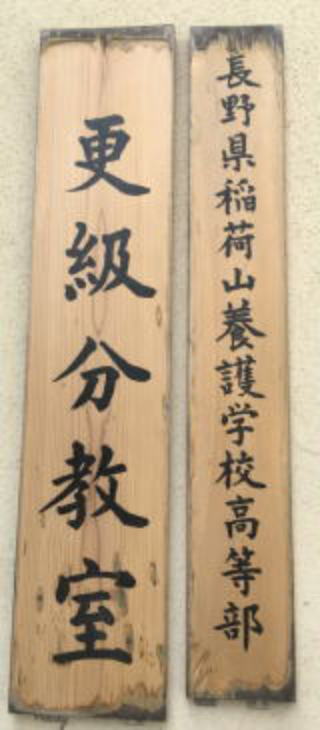 長野県稲荷山養護学校高等部
更級分教室